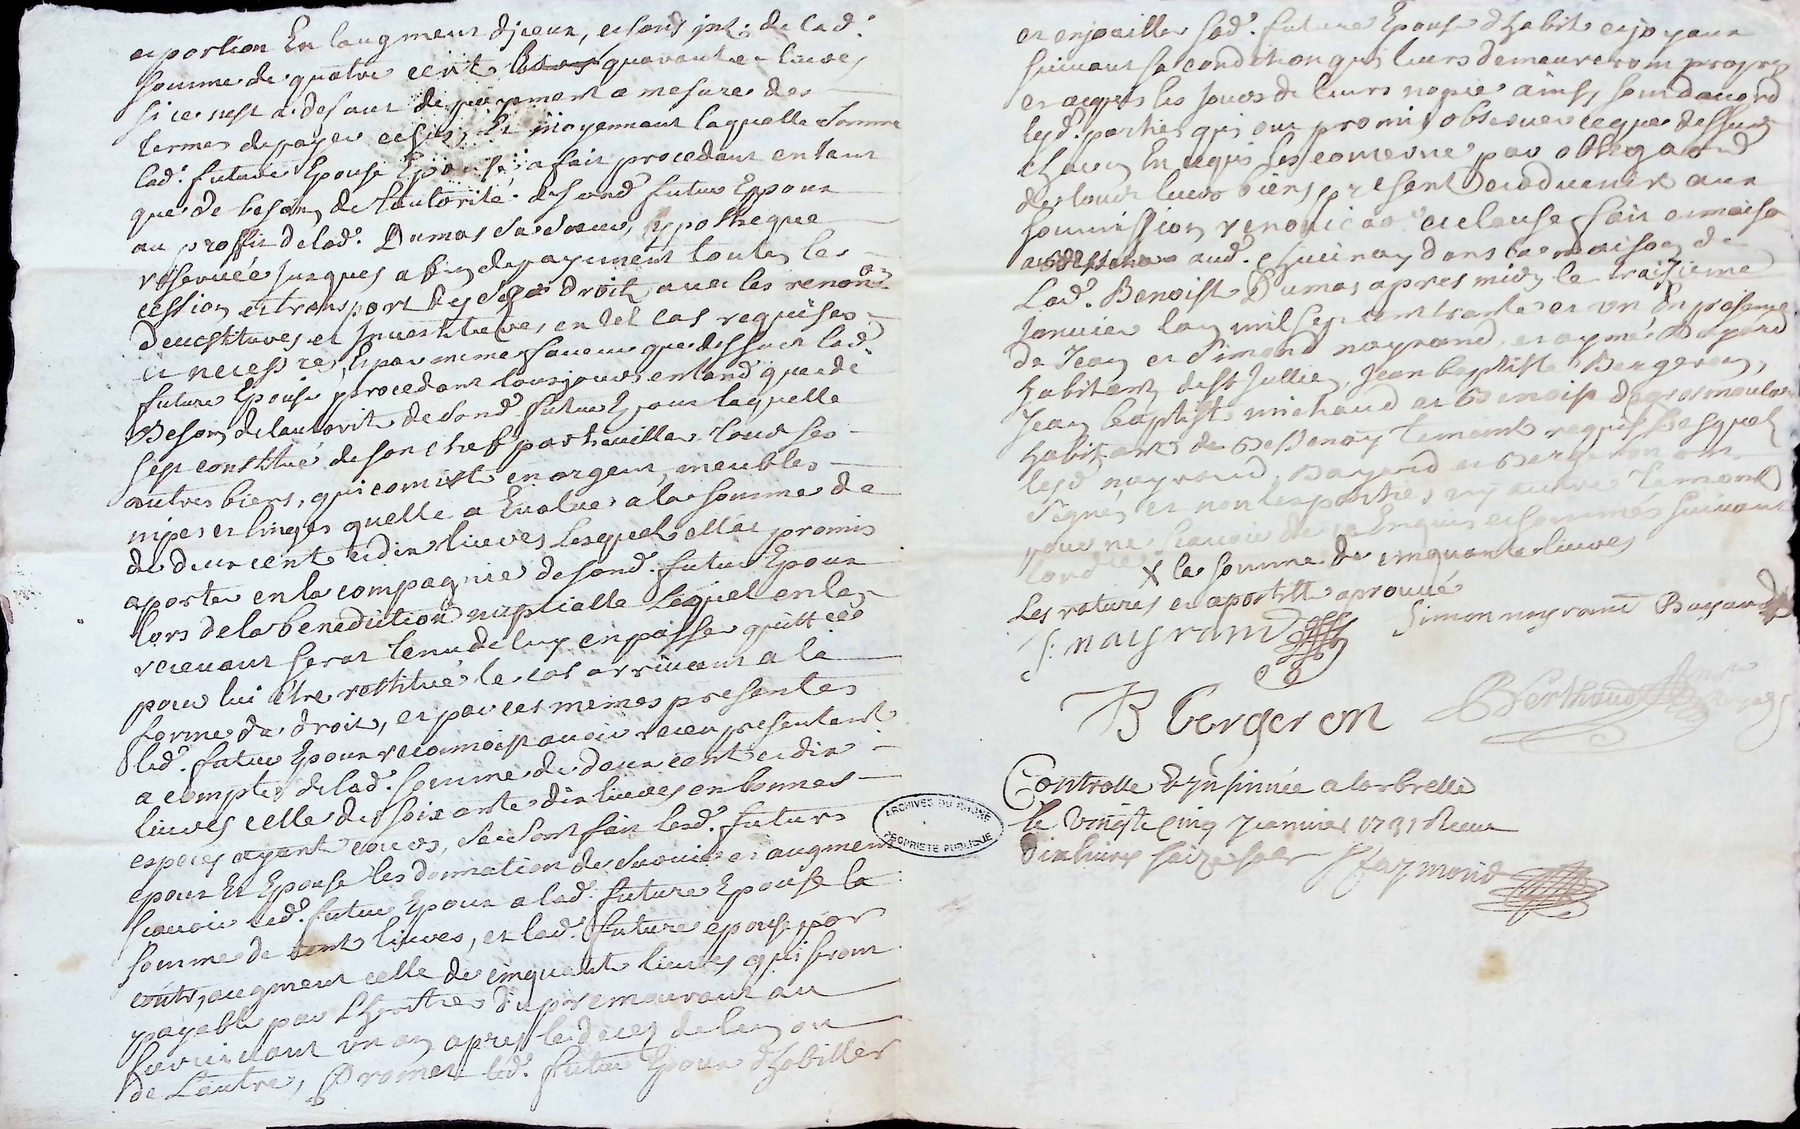 et portion En laugment djceux, et sans jnt. de lad.
somme de quatre cent quarante livres
si ce nest a defaut de payment a mesure des
termes de payer echus, Et moyennant laquelle somme
lad. future Epouse a fait procedant en tant
que de besoin de lautorité de sond. futur Epoux
au proffit de lad. Dumas sa soeur, hypotheque
reservée jusques a fin de payement toutes les
cession et transport de ses droits avec les renon.on
devestitures et Jnvestitures, en tel cas requises
et necess.res, Et par meme faveur que dessus lad.
future Epouse procedant tousjours en tand que de
Besoin de lautorité de sond. futur Epoux laquelle
sest constitué de son chef par tous ses
autres biens, qui consist en argent, meubles
nipes et linges quelle a Evalué a la somme de
de deux cent et dix livres Lesquels elle promis
aporter en la compagnie de sond. futur Epoux
lors de la benediction nuptialle Lequel en les
recevant serat tenu de luy en passer quittce
pour lui être restitué le cas arrivant a la
forme du droit, et par ces memes presentes
led. futur Epoux reconnoist avoir receu presentement
a compte de lad. somme de deux cent et dix
livres celle de soixante dix livres en bonnes
especes ayant cours, se sont fait lesd. futurs
epoux Et Epouse les donnation de survie et augment
scavoir led. futur Epoux a lad. future Epouse la
somme de cent livres, et lad. future epouse par
contr, augment celle de cinquante livres qui seront
payable par Lheritier du premourant au
survivant un an apres le deces de lun ou
de Lautre, Promet led. futur Epoux dhabiller
et enjoailler sad. future Epouse dhabits et joyaux
suivant sa condition qui leurs demeureront propres
et acquis les jours de leurs nopces ainsy sont daccord
lesd. parties qui ont promis observer ce que dessus
chacun En ce qui les concerne par obligaon
de tous leurs biens present et advenir aux
soumission renonciaon et clause, fait et
aud. dans la maison de
Lad. Benoist Dumas apres midy le treizieme
Janvier lan mil sept cent trante et un En presence
de Jean et Simond nayrand, et aymé Bayard
habitant de St Jullien, Jean baptiste Bergeron,
Jean baptiste michaud et Benoist
habitants de Bessenay temoins requis Lesquels
lesd. nayrand, Bayard et Bergeron ont
signés et non les parties ny autre temoins
pour ne scavoir de ce Enquis et sommés suivant
lordce X la somme de cinquante livres
Les ratures et apostille aprouvé
J: nayrand Simon nayrand Bayard
B bergeron Berthaud
Controlle & Jnsinuée a larbrelle
le vingt cinq Janvier 1731 Receu
dix livres seize sols Feymond
ARCHIVES DU RHÔNE
PROPRIÉTÉ PUBLIQUE